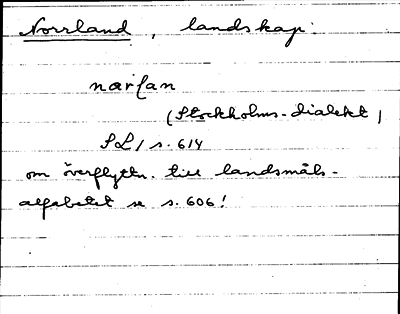 Norrland, landskap:
narlan
(Stockholms-dialekt)
SL 1 s. 614
om överflyttn. till landsmåls-
alfabetet se s. 606!